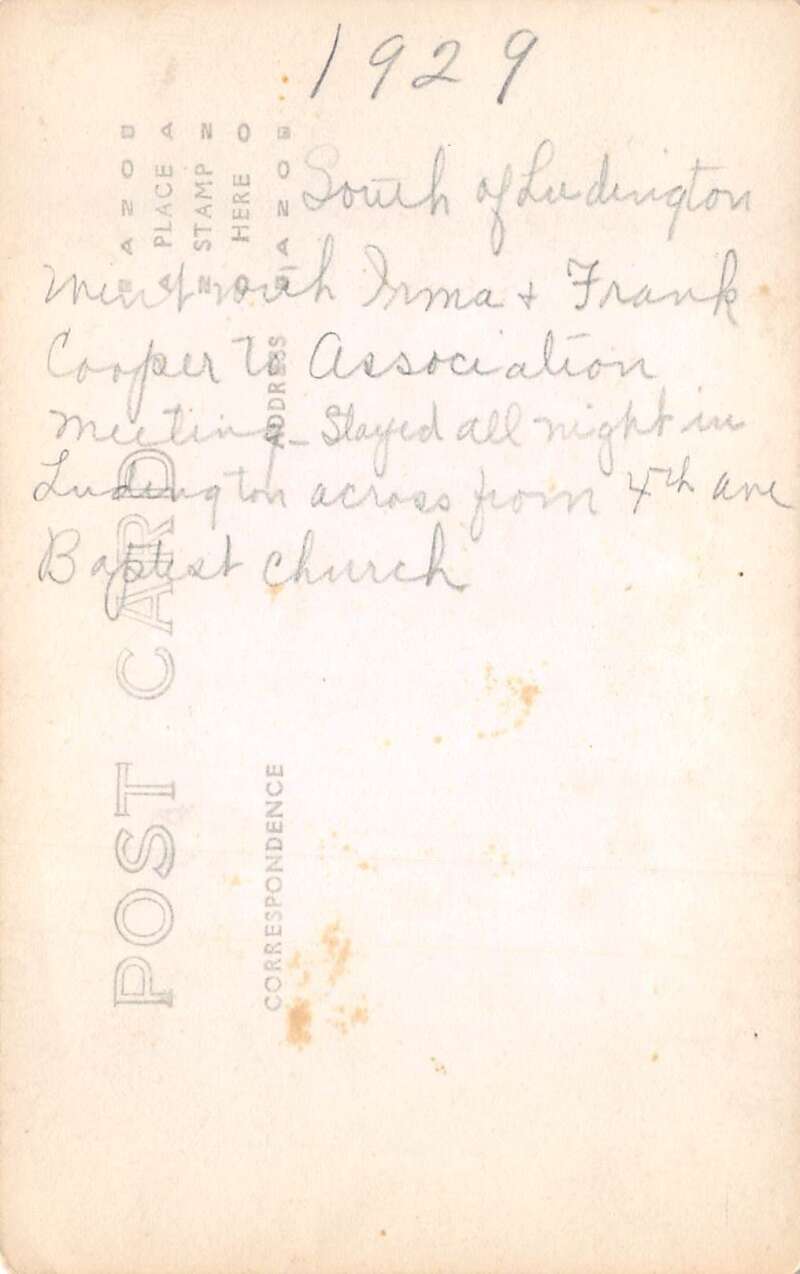 1929
South of Ludington
Went with Irma + Frank
Cooper to Association
Meeting - Stayed all night in
Ludington across from 4th ave
Baptist church
POST CARD
CORRESPONDENCE
ADDRESS
PLACE
STAMP
HERE